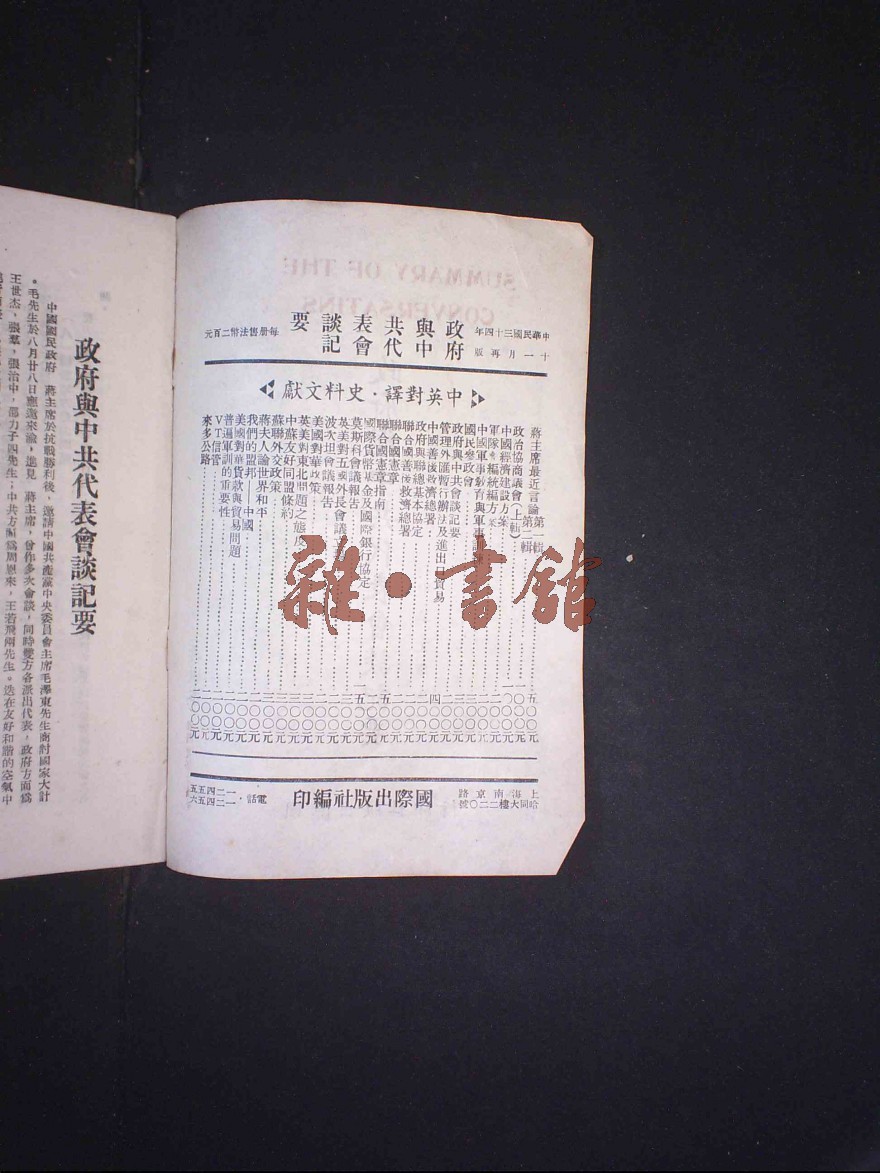 中華民國三十四年
十一月再版
政府與中共代表會談記要
每册售法幣二百元
中英對譯・史料文獻
蔣主席最近言論第一輯
第二輯
政治協商議會(上輯)
中國經濟建設方案
軍隊整編統編方案
中國軍事教育與軍事
國民參政會
政府與中共會談記要
管理外匯暫行辦法及進出口貿易
中國善後救濟總署
政府與聯總基本協定
聯合國善後救濟總署
聯合國憲章
聯合國憲章指南
國際貨幣基金及國際銀行協定
莫斯科會議報告
英美對五國外長會議
波次坦會議報告
美國對華政策
英美對東北問題之態度
中蘇友好同盟條約
蘇聯外交政策
蔣夫人論世界和平
我們的盟邦——中國
美國對華貸款與貿易問題
普遍軍訓的重要性
VT信管
來多公路
上海南京路
哈同大樓二二〇號
國際出版社編印
電話・一二四五五
一二四五六
政府與中共代表會談記要
中國國民政府 蔣主席於抗戰勝利後,邀請中國共產黨中央委員會主席毛澤東先生商討國家大計
。毛先生於八月廿八日應邀來渝,進見 蔣主席,曾作多次會談,同時雙方各派出代表,政府方面為
王世杰,張羣,張治中,邵力子四先生;中共方面為周恩來,王若飛兩先生。迭在友好和諧的空氣中
雜・書館
SUMMARY OF THE